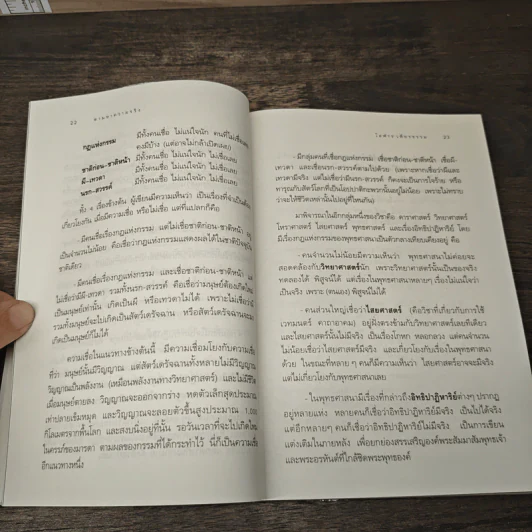 22 ตามหาความจริง
กฎแห่งกรรม มีทั้งคนเชื่อ ไม่แน่ใจนัก คนที่ไม่เชื่อเลย
คงมีบ้าง (แต่อาจไม่กล้าเปิดเผย)
ชาติก่อน-ชาติหน้า มีทั้งคนเชื่อ ไม่แน่ใจนัก ไม่เชื่อเลย
ผี-เทวดา มีทั้งคนเชื่อ ไม่แน่ใจนัก ไม่เชื่อเลย
นรก-สวรรค์ มีทั้งคนเชื่อ ไม่แน่ใจนัก ไม่เชื่อเลย
ทั้ง ๔ เรื่องข้างต้น ผู้เขียนมีความเห็นว่า เป็นเรื่องที่จำเป็นต้อง
เกี่ยวโยงกัน เมื่อมีความเชื่อ หรือไม่เชื่อ แต่ที่แปลกก็คือ
- มีคนเชื่อเรื่องกฎแห่งกรรม แต่ไม่เชื่อชาติก่อน-ชาติหน้า
เป็นจำนวนไม่น้อย คือเชื่อว่ากฎแห่งกรรมแสดงผลได้ในชาติปัจจุบัน
ชาติเดียว
- มีคนเชื่อเรื่องกฎแห่งกรรม และเชื่อชาติก่อน-ชาติหน้า แต่
ไม่เชื่อว่ามีผี-เทวดา รวมทั้งนรก-สวรรค์ คือเชื่อว่ามนุษย์ต้องเกิดใหม่
เป็นมนุษย์เท่านั้น เกิดเป็นผี หรือเทวดาไม่ได้ เพราะไม่เชื่อว่ามี
รวมทั้งมนุษย์จะไปเกิดเป็นสัตว์เดรัจฉาน หรือสัตว์เดรัจฉานจะมา
เกิดเป็นมนุษย์ก็ไม่ได้
ความเชื่อในแนวทางข้างต้นนี้ มีความเชื่อมโยงกับความเชื่อ
ที่ว่า มนุษย์นั้นมีวิญญาณ แต่สัตว์เดรัจฉานทั้งหลายไม่มีวิญญาณ
วิญญาณเป็นพลังงาน (เหมือนพลังงานทางวิทยาศาสตร์) และไม่มีชีวิต
เมื่อมนุษย์ตายลง วิญญาณจะออกจากร่าง หดตัวเล็กสุดประมาณ
เท่าปลายเข็มหมุด และวิญญาณจะลอยตัวขึ้นสูงประมาณ 1,000
กิโลเมตรจากพื้นโลก และสงบนิ่งอยู่ที่นั้น รอวันเวลาที่จะไปเกิดใหม่
ในครรภ์ของมารดา ตามผลของกรรมที่ได้กระทำไว้ นี่ก็เป็นความเชื่อ
อีกแนวทางหนึ่ง
23
- มีกลุ่มคนที่เชื่อกฎแห่งกรรม เชื่อชาติก่อน-ชาติหน้า เชื่อผี-
เทวดา และเชื่อนรก-สวรรค์ตามไปด้วย (เพราะหากเชื่อว่าผีและ
เทวดามีจริง แต่ไม่เชื่อว่ามีนรก-สวรรค์ ก็คงจะเป็นการใจร้าย หรือ
ทารุณกับสัตว์โลกที่เป็นโอปปาติกะพวกนั้นอยู่ไม่น้อย เพราะไม่ทราบ
ว่าจะให้ชีวิตเหล่านั้นไปอยู่ที่ไหนกัน)
มาพิจารณาในอีกกลุ่มหนึ่งของวิชาคือ ดาราศาสตร์ วิทยาศาสตร์
โหราศาสตร์ ไสยศาสตร์ พุทธศาสตร์ และเรื่องอิทธิปาฏิหาริย์ โดย
มีเรื่องกฎแห่งกรรมของพุทธศาสนาเป็นตัวกลางเทียบเคียงอยู่ คือ
- คนจำนวนไม่น้อยมีความเห็นว่า พุทธศาสนาไม่ค่อยจะ
สอดคล้องกับวิทยาศาสตร์นัก เพราะวิทยาศาสตร์นั้นเป็นของจริง
ทดลองได้ พิสูจน์ได้ แต่เรื่องในพุทธศาสนาหลายๆ เรื่องไม่แน่ใจว่า
เป็นจริง เพราะ (ตนเอง) พิสูจน์ไม่ได้
- คนส่วนใหญ่เชื่อว่าไสยศาสตร์ (คือวิชาที่เกี่ยวกับการใช้
เวทมนตร์ คาถาอาคม) อยู่ฝั่งตรงข้ามกับวิทยาศาสตร์เลยทีเดียว
และไสยศาสตร์นั้นไม่มีจริง เป็นเรื่องโกหก หลอกลวง แต่คนจำนวน
ไม่น้อยเชื่อว่าไสยศาสตร์มีจริง และเกี่ยวโยงกับเรื่องในพุทธศาสนา
ด้วย ในขณะที่หลาย ๆ คนก็มีความเห็นว่า ไสยศาสตร์อาจจะมีจริง
แต่ไม่เกี่ยวโยงกับพุทธศาสนาเลย
- ในพุทธศาสนามีเรื่องที่กล่าวถึงอิทธิปาฏิหาริย์ต่างๆ ปรากฏ
อยู่หลายแห่ง หลายคนก็เชื่อว่าอิทธิปาฏิหาริย์มีจริง เป็นไปได้จริง
แต่อีกหลายๆ คนก็เชื่อว่าอิทธิปาฏิหาริย์ไม่มีจริง เป็นการเขียน
แต่งเติมในภายหลัง เพื่อยกย่องสรรเสริญองค์พระสัมมาสัมพุทธเจ้า
และพระอรหันต์ที่ใกล้ชิดพระพุทธองค์